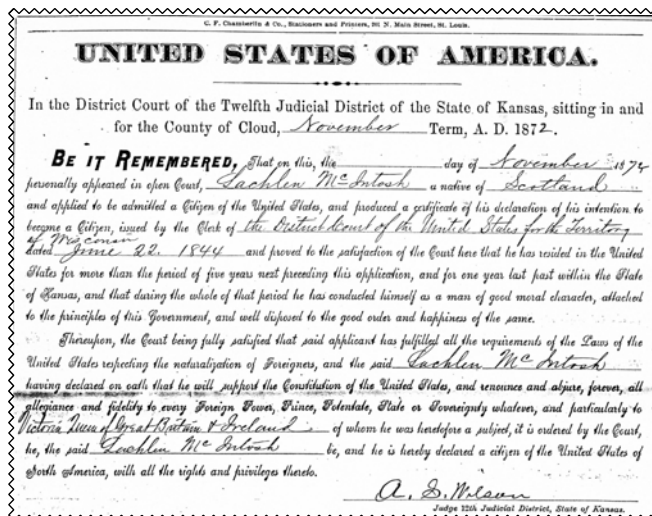 C. F. Chamberlin & Co., Stationers and Printers, 301 N. Main Street, St. Louis.
UNITED STATES OF AMERICA.
In the District Court of the Twelfth Judicial District of the State of Kansas, sitting in and
for the County of Cloud, November Term, A. D. 1872.
BE IT REMEMBERED, That on this, the day of November 1872
personally appeared in open Court, Lachlen McIntosh a native of Scotland
and applied to be admitted a Citizen of the United States, and produced a certificate of his declaration of his intention to
become a Citizen, issued by the Clerk of the District Court of the United States for the Territory
of Wisconsin
dated June 22. 1844 and proved to the satisfaction of the Court here that he has resided in the United
States for more than the period of five years next preceding this application, and for one year last past within the State
of Kansas, and that during the whole of that period he has conducted himself as a man of good moral character, attached
to the principles of this Government, and well disposed to the good order and happiness of the same.
Thereupon, the Court being fully satisfied that said applicant has fulfilled all the requirements of the Laws of the
United States respecting the naturalization of Foreigners, and the said Lachlen McIntosh
having declared on oath that he will support the Constitution of the United States, and renounce and abjure, forever, all
allegiance and fidelity to every Foreign Power, Prince, Potentate, State or Sovereignty whatever, and particularly to
Victoria Queen of Great Britain & Ireland of whom he was heretofore a subject, it is ordered by the Court,
he, the said Lachlen McIntosh be, and he is hereby declared a citizen of the United States of
North America, with all the rights and privileges thereto.
A. S. Wilson
Judge 12th Judicial District, State of Kansas.